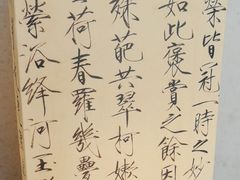 榮皆冠一時之妙
如此褒賞之餘因
殊葩共翠柯嫩
荷春羅幾疊
縈浴絳河玉